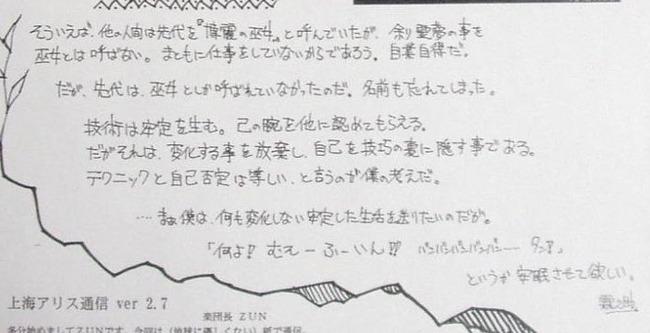 そういえば、他の人間は先代を『博麗の巫女』と呼んでいたが、余り霊夢の事を
巫女とは呼ばない。まともに仕事をしていないからであろう。自業自得だ。
だが、先代は、巫女としか呼ばれていなかったのだ。名前も忘れてしまった。
技術は安定を生む。己の腕を他に認めてもらえる。
だがそれは、変化する事を放棄し、自己を技巧の裏に隠す事である。
テクニックと自己否定は等しい、と言うのが僕の考えだ。
…まぁ僕は、何も変化しない安定した生活を送りたいのだが。
「何よ!! むえーふぇーいん!! バンバンバンバンバンー タン!!」
というか安眠させて欲しい。
霖之助
上海アリス通信 ver 2.7
楽団長 ZUN
多分始めましてZUNです。今回は(地球に優しくない)紙で通信。